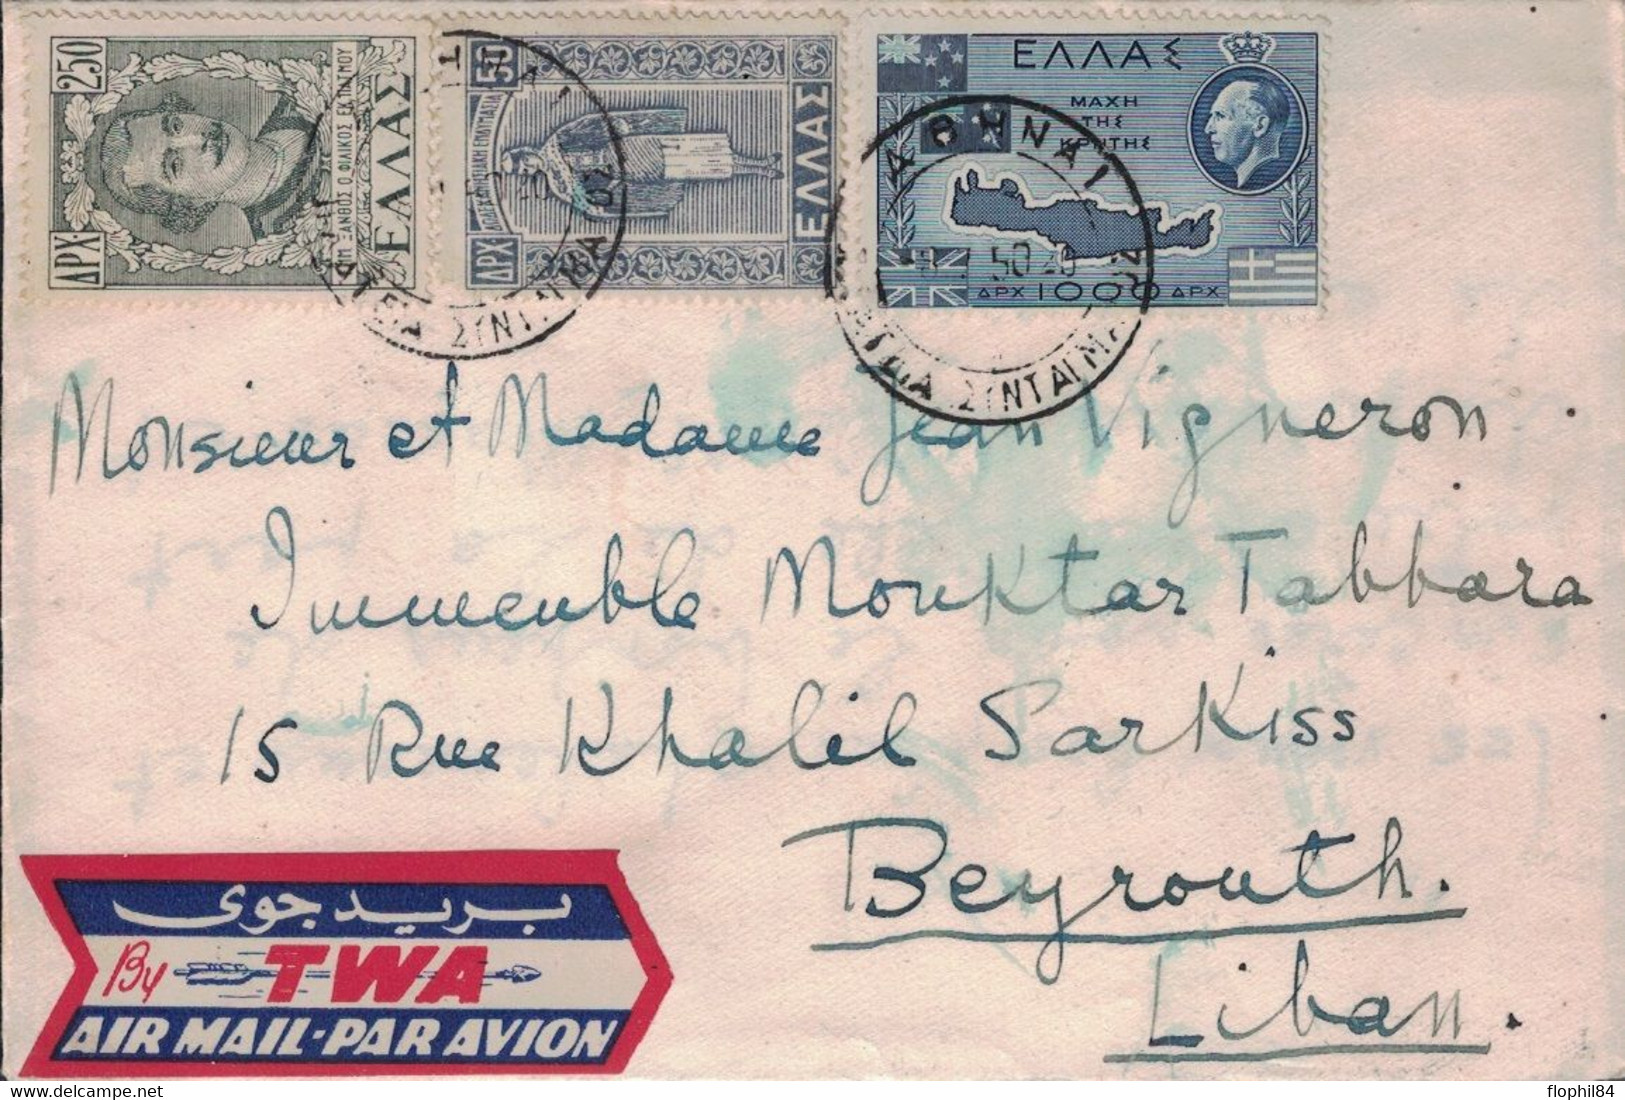 250
ΔΡΧ
ΕΜΜ. ΞΑΝΘΟΣ Ο ΦΙΛΙΚΟΣ ΕΚ ΠΑΤΜΟΥ
ΕΛΛΑΣ
50
ΔΡΧ
ΔΩΔΕΚΑΝΗΣΙΑΚΗ ΕΝΔΥΜΑΣΙΑ
ΕΛΛΑΣ
ΕΛΛΑΣ
ΜΑΧΗ
ΤΗΣ
ΚΡΗΤΗΣ
ΔΡΧ 1000 ΔΡΧ
ΑΘΗΝΑΙ
50 20
ΣΥΝΤΑΓΜΑ
Monsieur et Madame Jean Vigneron
Immeuble Mouktar Tabbara
15 Rue Khalil Sarkiss
Beyrouth.
Liban.
بريد جوى
By TWA
AIR MAIL-PAR AVION
flophil84